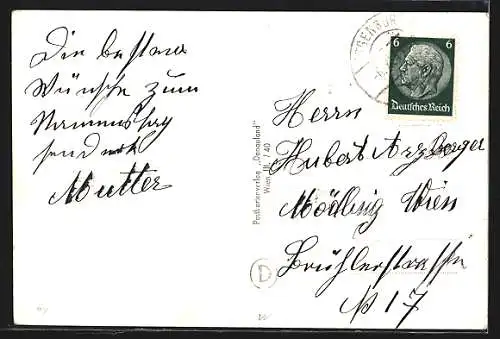 Die besten
Wünsche zum
Namenstag
sendet
Mutter
Postkartenverlag „Donauland"
Wien III. / 40
D
6 6
Deutsches Reich
Herrn
Hubert
Mödling Wien
Brühlerstrasse
N 17